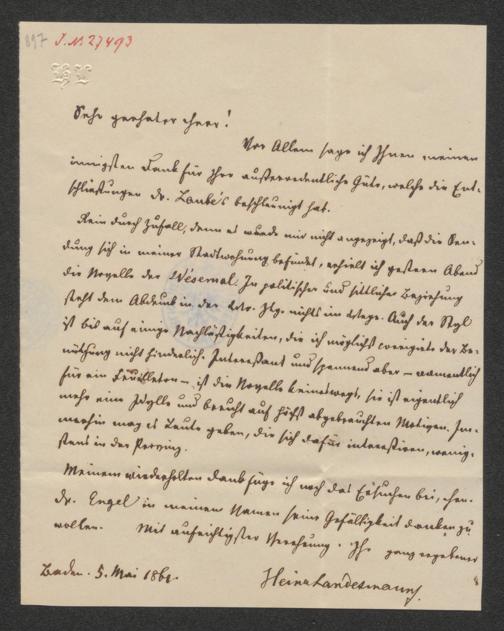 897 I.N. 27493
HL
Sehr geehrter Herr!
Vor Allem sage ich Ihnen meinen
innigsten Dank für Ihre außerordentliche Güte, welche die Ent-
schließungen Dr. Laube's beschleunigt hat.
Rein durch Zufall, denn es wurde mir nicht angezeigt, daß die Sen-
dung sich in meiner Stadtwohnung befindet, erhielt ich gestern Abend
die Novelle der Wesemal. In politischer und sittlicher Beziehung
steht dem Abdruck in der Ztg. nichts im Wege. Auch der Styl
ist bis auf einige Nachlässigkeiten, die ich möglichst corrigirte der Be-
nützung nicht hinderlich. Interessant und spannend aber – namentlich
für ein Feuilleton – ist die Novelle keineswegs, sie ist eigentlich
mehr eine Idylle und beruht auf höchst abgebrauchten Motiven. Im-
merhin mag es Leute geben, die sich dafür interessiren, wenig-
stens in der Provinz.
Meinem wiederholten Dank füge ich noch das Ersuchen bei, Herrn
Dr. Engel in meinem Namen für seine Gefälligkeit danken zu
wollen. Mit aufrichtigster Verehrung Ihr ganz ergebener
Baden. 5. Mai 186 Heinr Landesmann